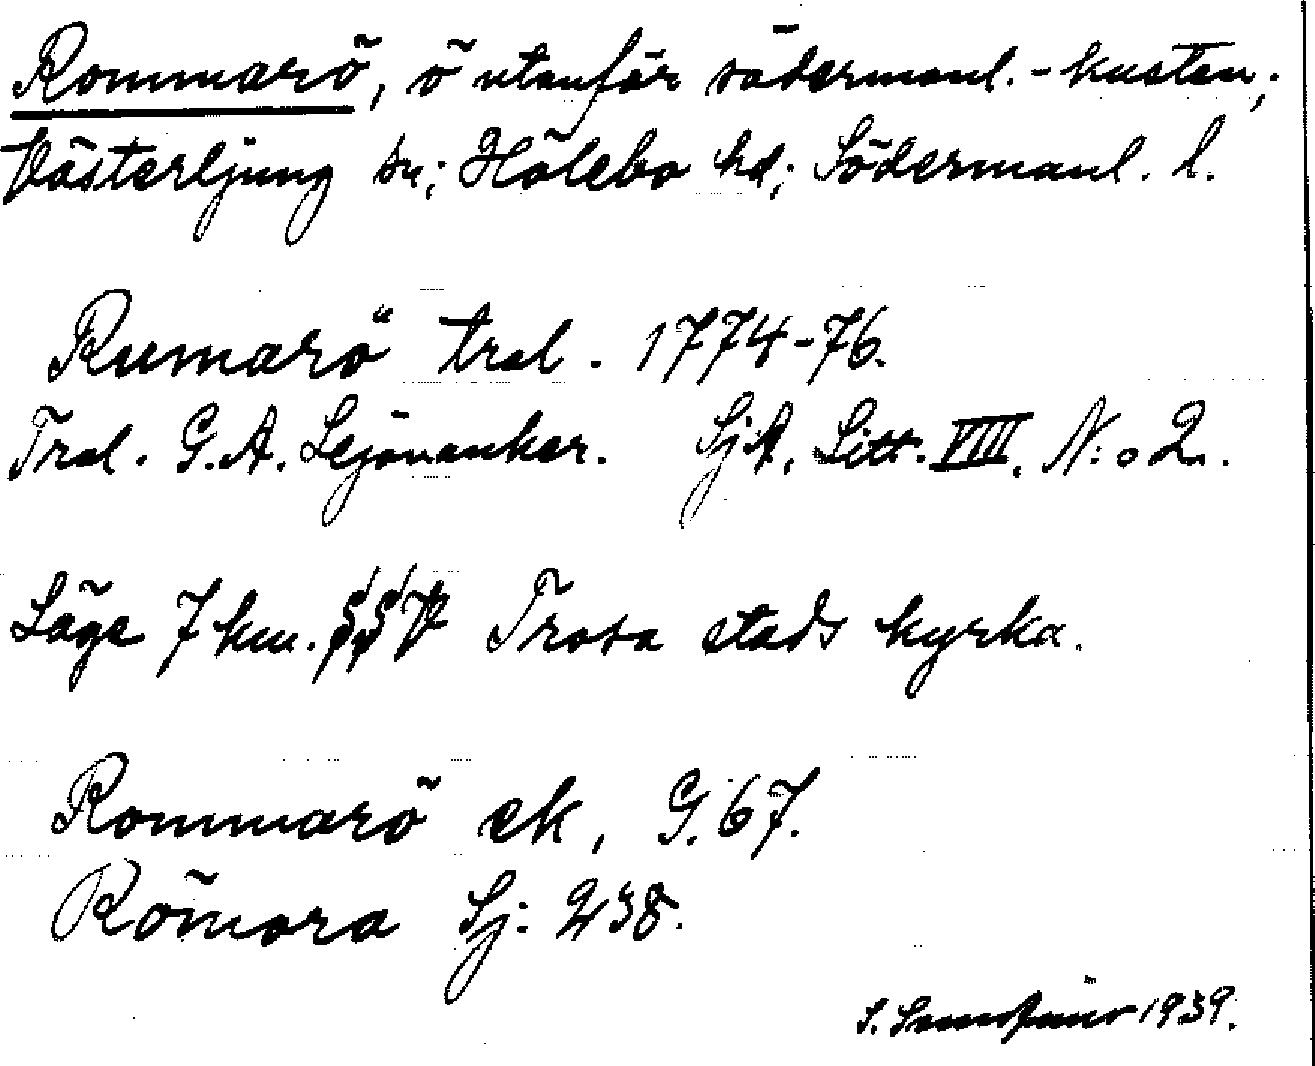 Rommarö, ö utanför södermanl.-kusten;
Västerljung sn; Hölebo hd; Södermanl. l.
Rumarö tral. 1774-76.
Tral. G.A. Lejonanker. SjA. Litt. VIII. N:o 2.
Läge 7 km. Trosa stads kyrka.
Rommarö ek, G. 67.
Römora Sj: 238.
1939.